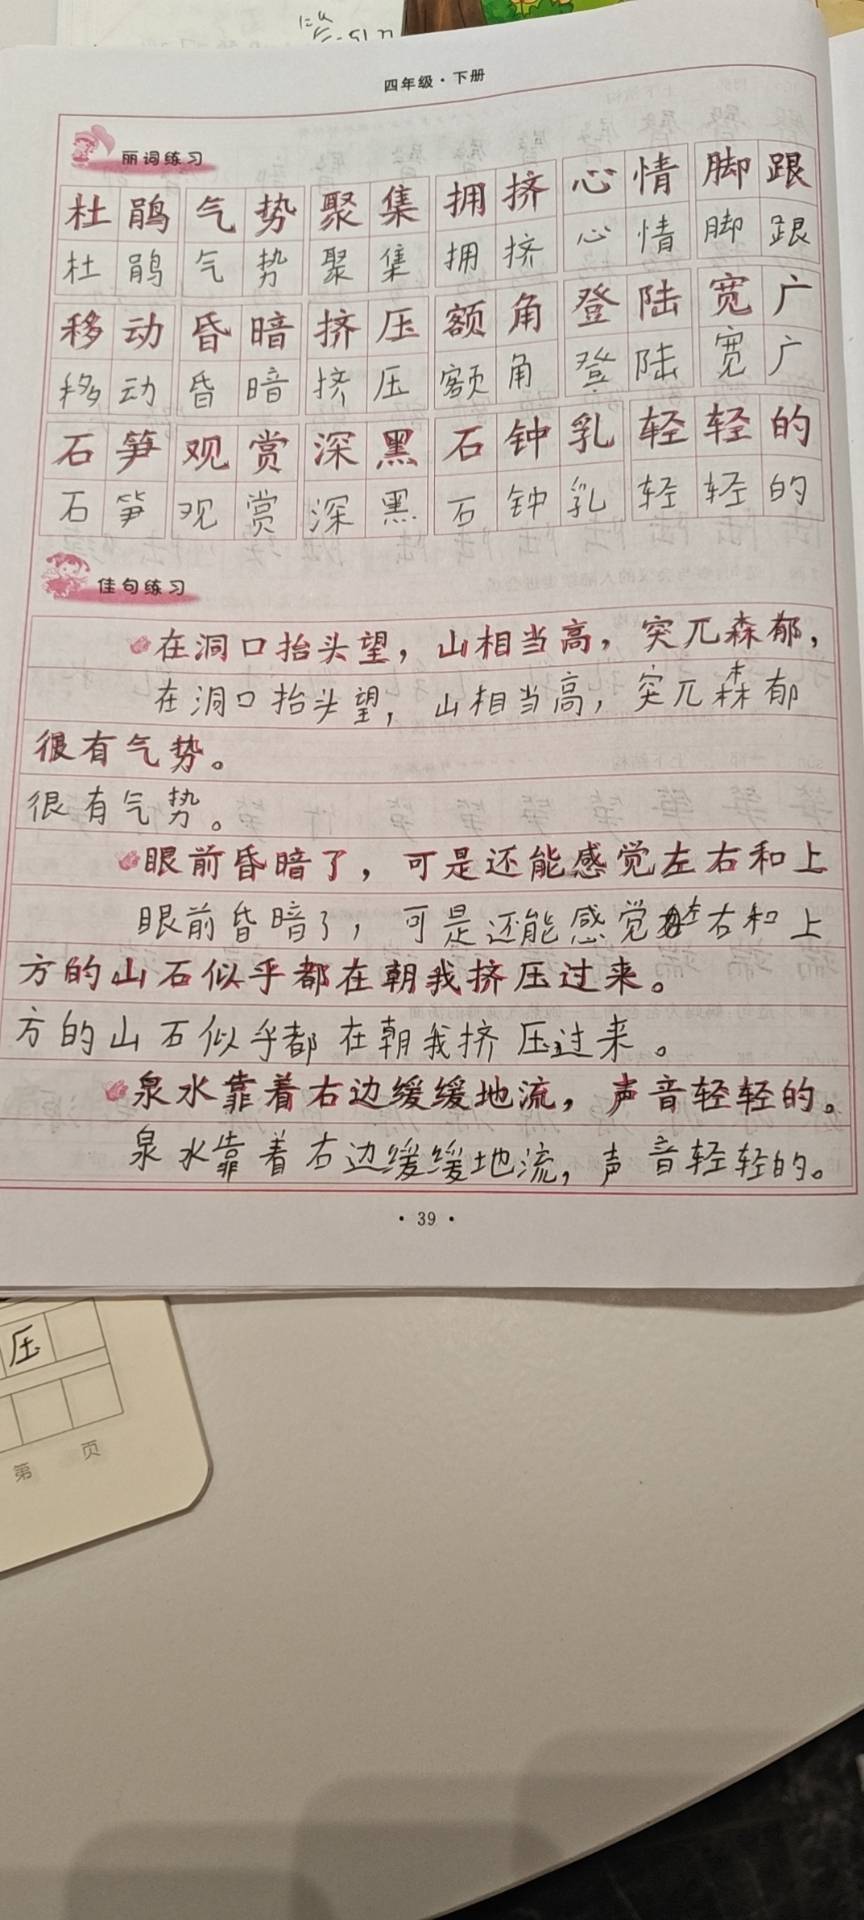 四年级·下册
丽词练习
杜鹃 气势 聚集 拥挤 心情 脚跟
杜鹃 气势 聚集 拥挤 心情 脚跟
移动 昏暗 挤压 额角 登陆 宽广
移动 昏暗 挤压 额角 登陆 宽广
石笋 观赏 深黑 石钟乳 轻轻的
石笋 观赏 深黑 石钟乳 轻轻的
佳句练习
在洞口抬头望，山相当高，突兀森郁，
在洞口抬头望，山相当高，突兀森郁
很有气势。
很有气势。
眼前昏暗了，可是还能感觉左右和上
眼前昏暗了，可是还能感觉左右和上
方的山石似乎都在朝我挤压过来。
方的山石似乎都在朝我挤压过来。
泉水靠着右边缓缓地流，声音轻轻的。
泉水靠着右边缓缓地流，声音轻轻的。
·39·
压
第 页